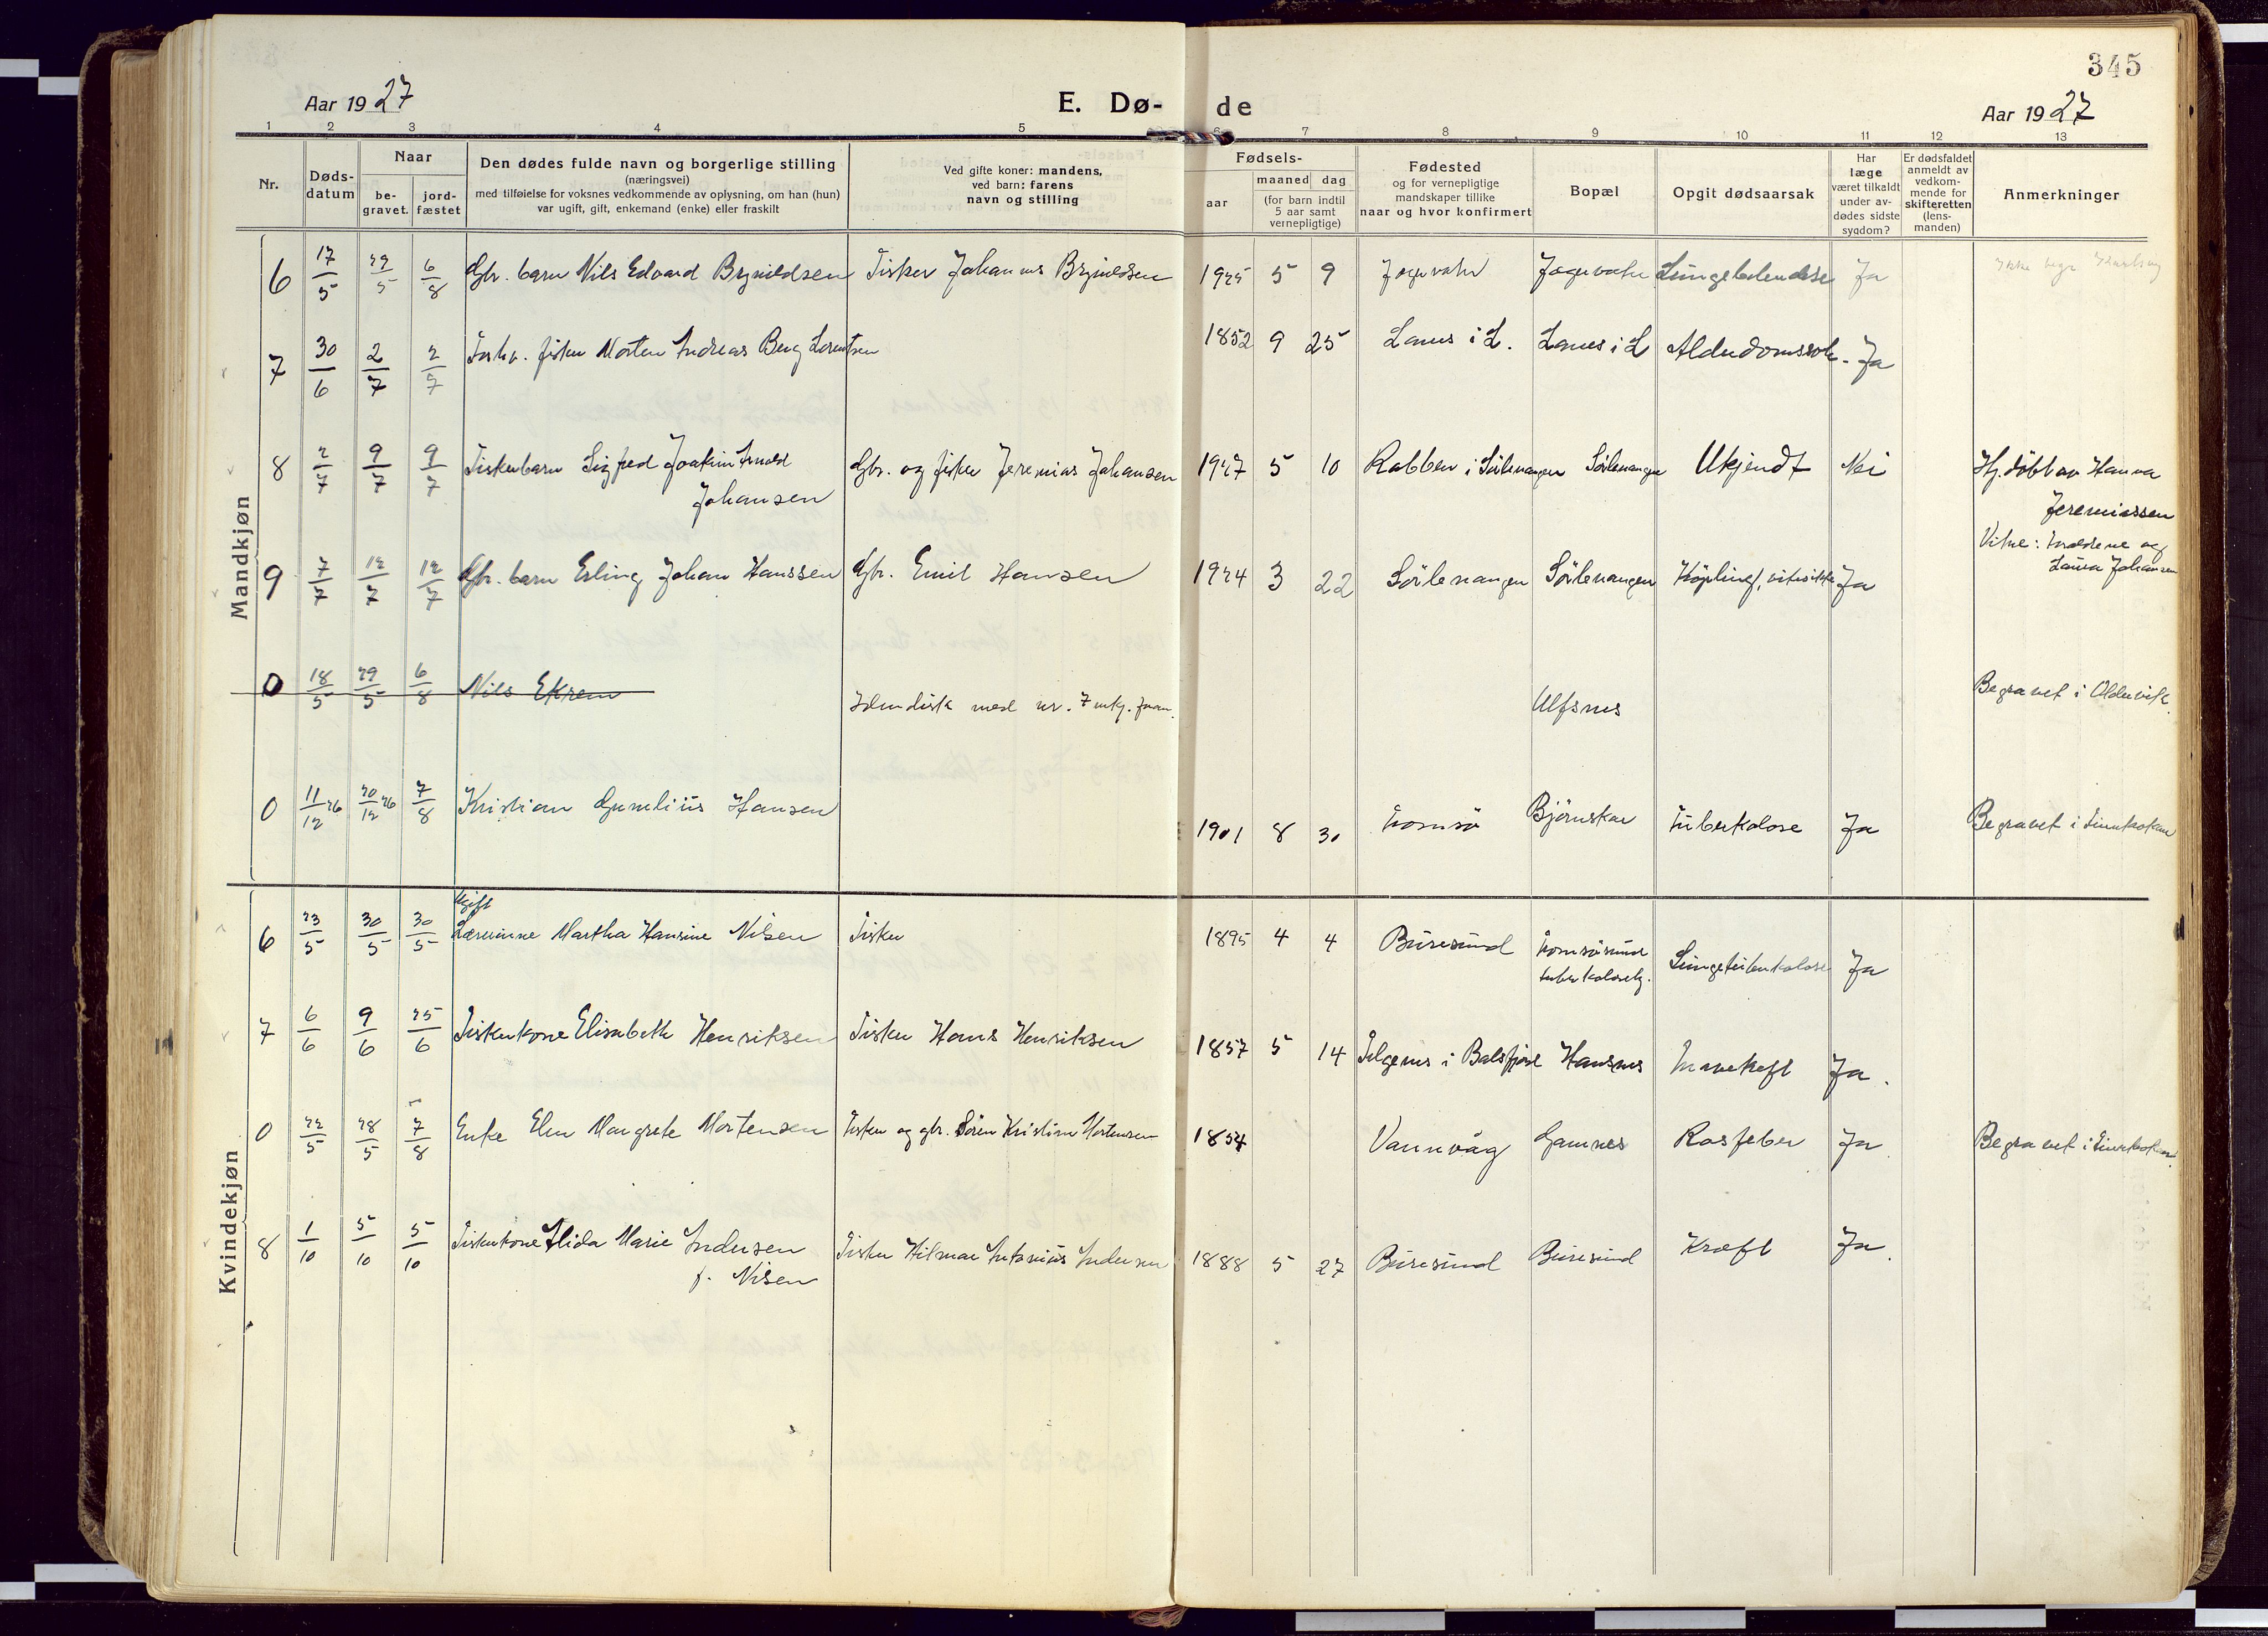 345
Aar 1927
E. Dø-
de
Aar 1927
1 2 3 4 5 6 7 8 9 10 11 12 13
Nr.
Døds-
datum
Naar
be-
gravet.
jord-
fæstet
Den dødes fulde navn og borgerlige stilling
(næringsvei)
med tilføielse for voksnes vedkommende av oplysning, om han (hun)
var ugift, gift, enkemand (enke) eller fraskilt
Ved gifte koner: mandens,
ved barn: farens
navn og stilling
Fødsels-
aar
maaned dag
(for barn indtil
5 aar samt
vernepligtige)
Fødested
og for vernepligtige
mandskaper tillike
naar og hvor konfirmert
Bopæl
Opgit dødsaarsak
Har
læge
været tilkaldt
under av-
dødes sidste
sygdom?
Er dødsfaldet
anmeldt av
vedkom-
mende for
skifteretten
(lens-
manden)
Anmerkninger
Mandkjøn
6 17/5 29/5 6/8 Gbr. barn Nils Edvard Brynildsen Fisker Johannes Brynildsen 1925 5 9 Jøgervatn Jøgervatn Lungebetendelse Ja
7 30/6 2/7 2/7 Forhv. fisker Morten Andreas Berg Lorentsen 1852 9 25 Lanes i L. Lanes i L Alderdomssvk. Ja
8 2/7 9/7 9/7 Fiskerbarn Sigfred Joakim Arnold
Johansen
Gbr. og fisker Jeremias Johansen 1927 5 10 Rabben i Sörlenangen Sörlenangen Ukjendt Nei Hj. döbt av Hanna
Jeremiassen
Vitne: Foreldrene og
Laura Johansen
9 7/7 12/7 12/7 Gbr. barn Erling Johan Hanssen Gbr. Emil Hansen 1924 3 22 Sörlenangen Sörlenangen Ja
0 18/5 29/5 6/8 Nils Ekrem Identisk med nr. 7 Ulfsnes Begravet i Oldervik.
0 11/12 26 20/12 26 7/8 Kristian Gunelius Hansen 1901 8 30 Tromsö Björnskar Tuberkolose Ja Begravet i Finnkroken
Kvindekjøn
ugift
6 23/5 30/5 30/5 Lærerinne Martha Hansine Nilsen Fisker 1895 4 4 Buresund Tromsösund
tuberkolosehj.
Lungetuberkolose Ja
7 6/6 9/6 25/6 Fiskerkone Elisabeth Henriksen Fisker Hans Henriksen 1857 5 14 Selgenes i Balsfjord Hansnes Mavekræft Ja.
0 22/5 28/5 7/8 Enke Elen Margrete Mortensen Fisker og gbr. Sören Kristian Mortensen 1854 Vannvåg Gamnes Rosfeber Ja. Begravet i Finnkroken.
8 1/10 5/10 5/10 Fiskerkone Alida Marie Andersen
f. Nilsen
Fisker Hilmar Antonius Andersen 1888 5 27 Buresund Buresund Kræft Ja.